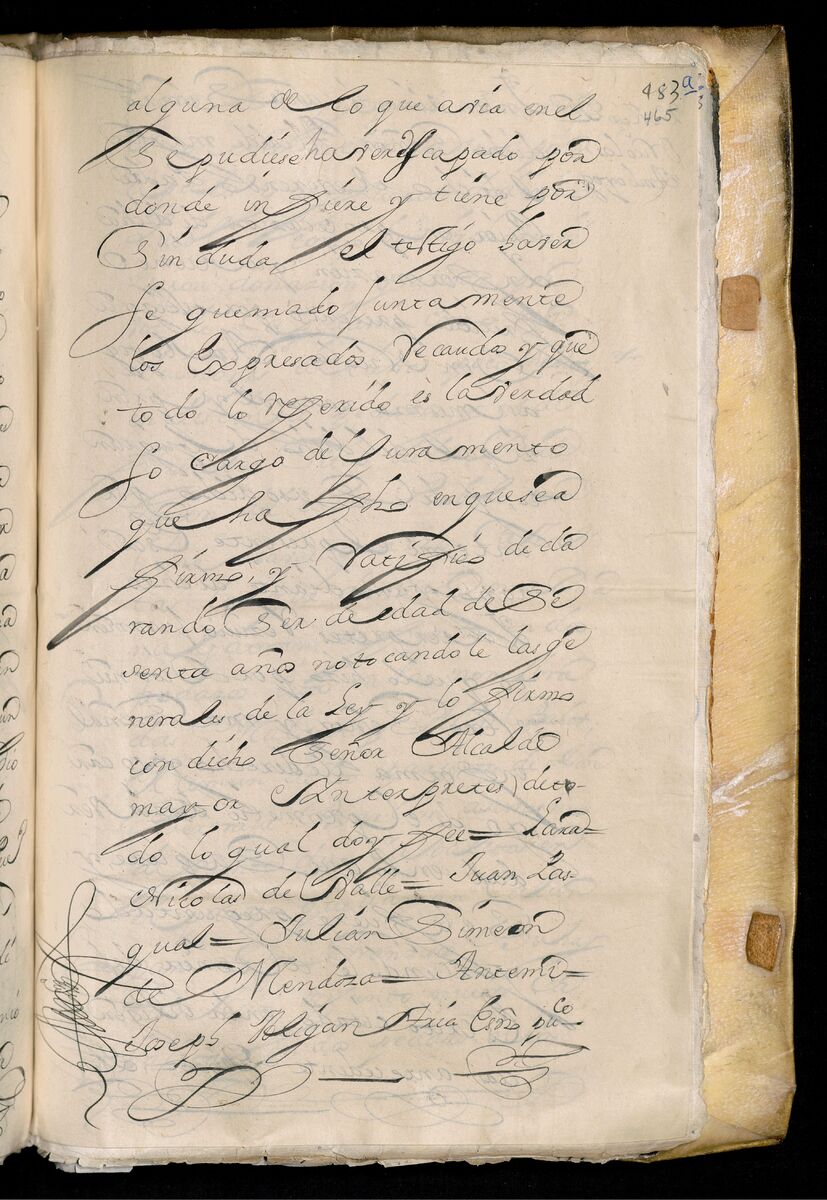 483 a
465
alguna de lo que avia en el
Se pudiese haver escapado por
donde infiere y tiene por
Sin duda el testigo haver
se quemado Juntamente
los Expresados Recaudos y que
todo lo referido es la verdad
so cargo de Juramento
que ha fho en que sea
firmo, y Ratifico decla
rando Ser de edad de Se
senta años no tocandole las ge
nerales de la Ley y lo firmo
con dicho Señor Alcalde
mayor e Ynterpretes de to-
do lo qual doy fee = Lara=
Nicolas de Valle = Juan Pas-
qual = Julian Simeon
de Mendoza = Antemi=
Joseph Arias Essno puco